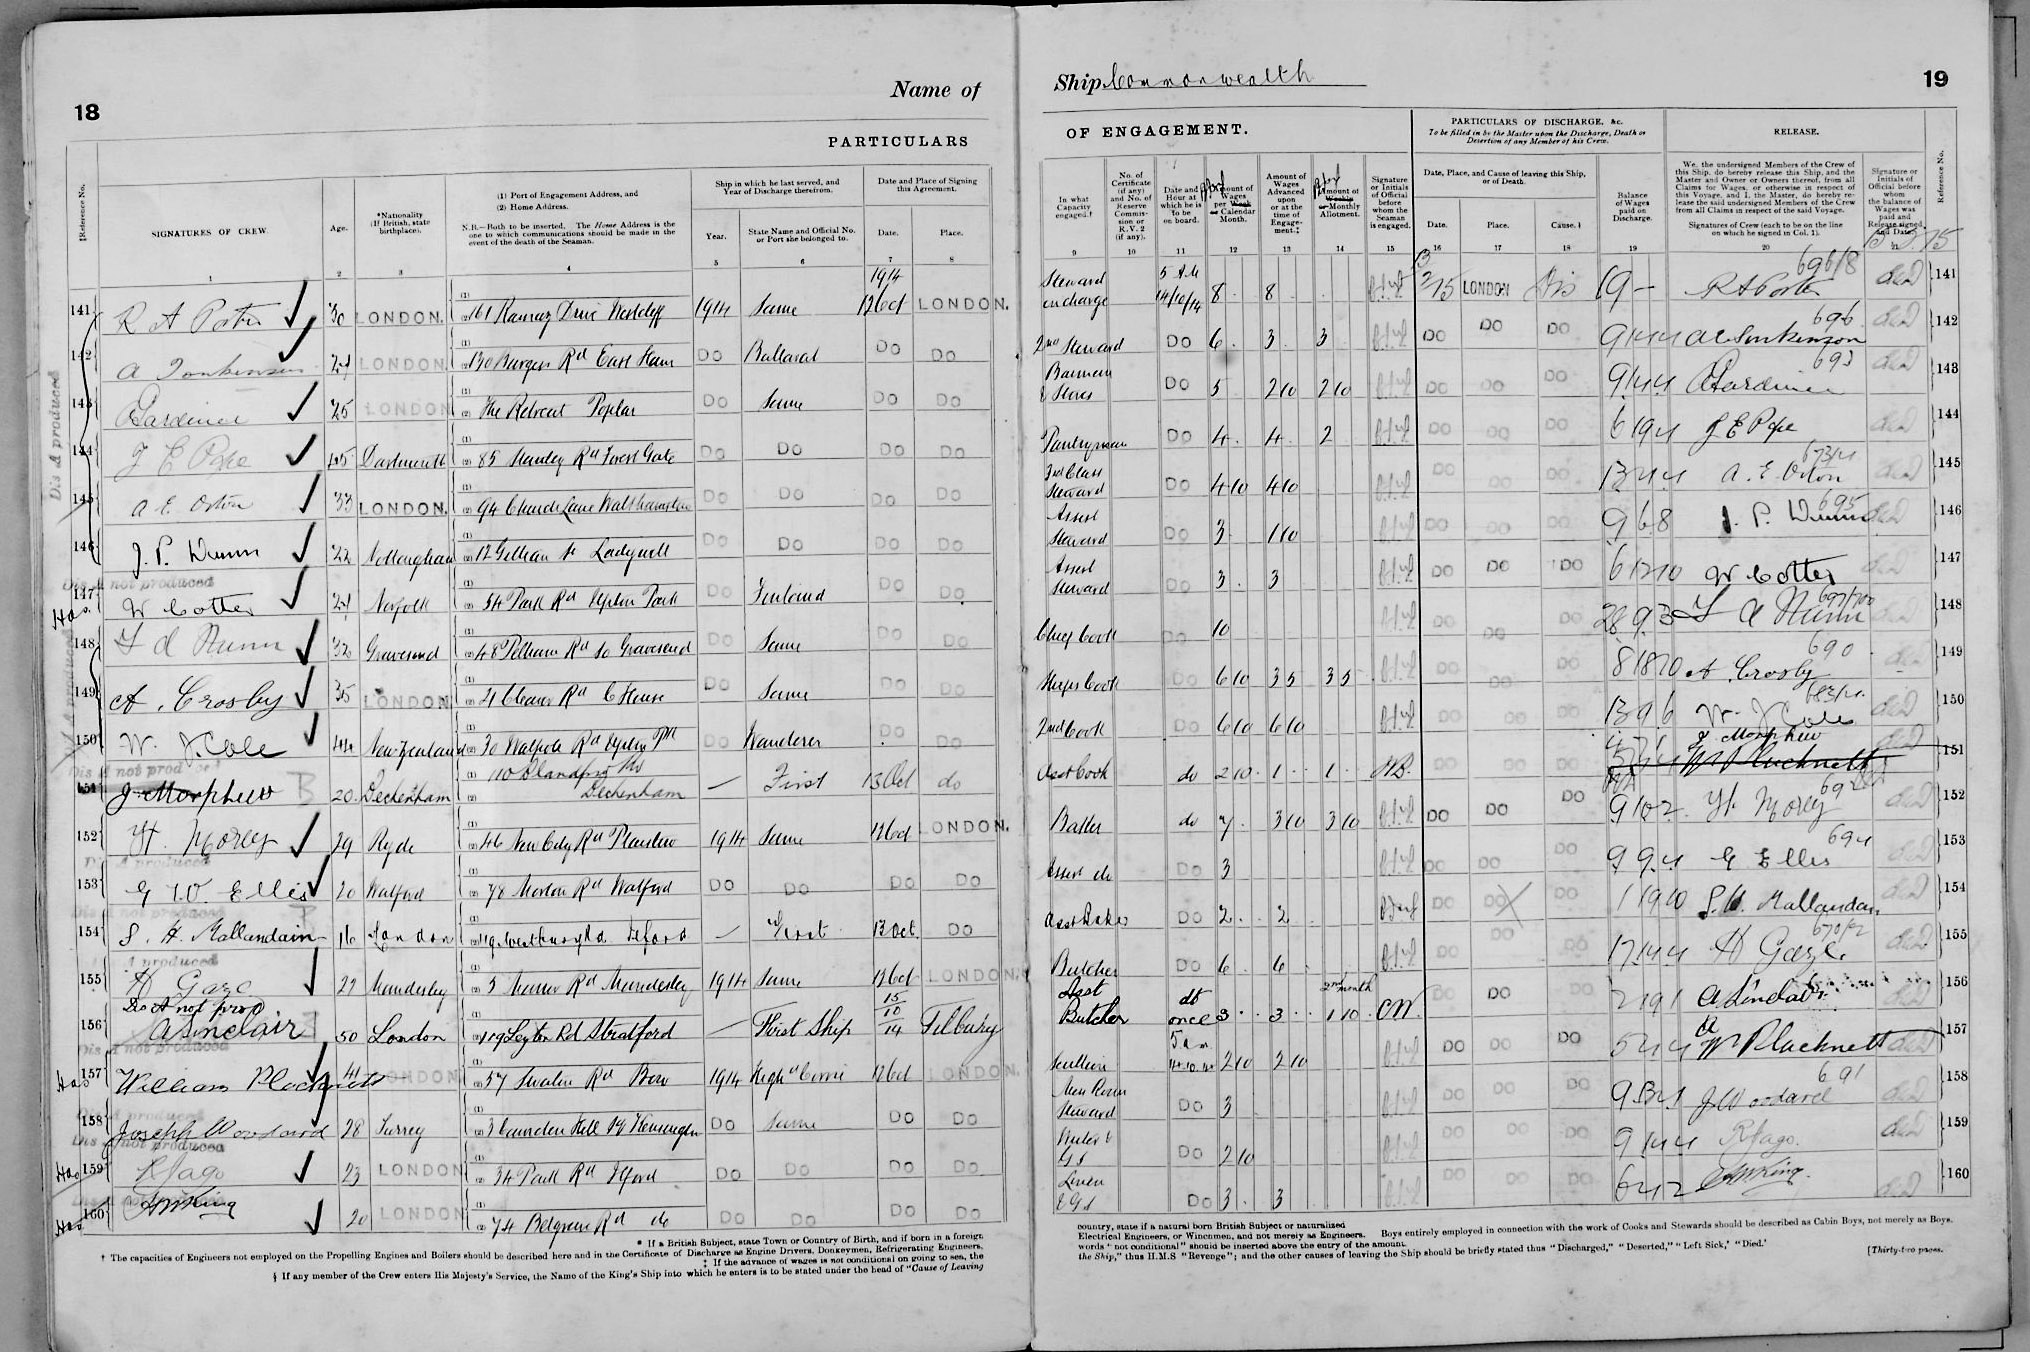 18
Name of
PARTICULARS
Reference No.
SIGNATURES OF CREW.
Age.
*Nationality
(If British, state
birthplace).
(1) Port of Engagement Address, and
(2) Home Address.
N.B.—Both to be inserted. The Home Address is the
one to which communications should be made in the
event of the death of the Seaman.
Ship in which he last served, and
Year of Discharge therefrom.
Year.
State Name and Official No.
or Port she belonged to.
Date and Place of Signing
this Agreement.
Date.
Place.
1 2 3 4 5 6 7 8
1914
141 R A Porter 30 LONDON. 161 Ramsey Drive Westcliff 1914 Same 12 Oct LONDON.
142 A Tonkinson 24 LONDON. 130 Burges Rd East Ham DO Ballarat DO DO
143 Gardiner 25 LONDON The Retreat Poplar DO Same DO DO
144 J E Pope 45 Dartmouth 85 Stanley Rd Forest Gate DO DO DO DO
145 A E Orton 33 LONDON. 94 Church Lane Walthamstow DO DO DO DO
146 J. P. Dunn 22 Nottingham 12 Gillian St Ladywell DO DO DO DO
Dis A not produced
147 W Cotter 24 Norfolk 54 Park Rd Upton Park DO DO DO
148 F A Nunn 32 Gravesend 48 Pelham Rd So Gravesend DO Same DO DO
149 A. Crosby 35 LONDON DO Same DO DO
150 W. J Cole 44 New Zealand 30 Walpole Rd Upton Pk DO Wanderer DO DO
151 J Morphew 20 Beckenham 110 Blandford Rd Beckenham — First 13 Oct do
152 H. Morey 29 Ryde 46 New City Rd Plaistow 1914 Same 12 Oct LONDON.
Dis A produced
153 G W. Ellis 20 Watford 78 Morton Rd Watford DO DO DO DO
Dis A not produced
154 S. H. Mallandain 16 London Ilford — First 13 Oct. DO
A produced
155 H Gaze 27 Mundesley 3 Manor Rd Mundesley 1914 Same 12 Oct LONDON.
Dis A not prod
156 A Sinclair 50 London 119 Leyton Rd Stratford — First Ship 15/10/14 Tilbury
Dis A not produced
157 William Plucknett 41 LONDON. 57 Rd Bow 1914 High'd Corrie 12 Oct LONDON.
Dis A produced
158 Joseph Woodard 28 Surrey 3 Camden Hill Kensington DO Same DO DO
Dis A not produced
159 R Jago 23 LONDON 34 Park Rd Ilford DO DO DO DO
Dis A not produced
160 King 20 LONDON 74 Belgrave Rd do DO DO DO DO
Has
Has
Has
Has
Dis A produced
* If a British Subject, state Town or Country of Birth, and if born in a foreign
† The capacities of Engineers not employed on the Propelling Engines and Boilers should be described here and in the Certificate of Discharge as Engine Drivers, Donkeymen, Refrigerating Engineers,
‡ If the advance of wages is not conditional on going to sea, the
§ If any member of the Crew enters His Majesty's Service, the Name of the King's Ship into which he enters is to be stated under the head of "Cause of Leaving
Ship Commonwealth
19
OF ENGAGEMENT.
PARTICULARS OF DISCHARGE, &c.
To be filled in by the Master upon the Discharge, Death or
Desertion of any Member of his Crew.
RELEASE.
In what
Capacity
engaged.†
No. of
Certificate
(if any)
and No. of
Reserve
Commis-
sion or
R.V. 2
(if any).
Date and
Hour at
which he is
to be
on board.
Amount of
Wages
per Week
or Calendar
Month.
Amount of
Wages
Advanced
upon
or at the
time of
Engage-
ment.‡
Amount of
Weekly
or Monthly
Allotment.
Signature
or Initials
of Official
before
whom the
Seaman
is engaged.
Date, Place, and Cause of leaving this Ship,
or of Death.
Date.
Place.
Cause.§
Balance
of Wages
paid on
Discharge.
We, the undersigned Members of the Crew of
this Ship, do hereby release this Ship, and the
Master and Owner or Owners thereof, from all
Claims for Wages, or otherwise in respect of
this Voyage, and I, the Master, do hereby re-
lease the said undersigned Members of the Crew
from all Claims in respect of the said Voyage.
Signatures of Crew (each to be on the line
on which he signed in Col. 1).
Signature or
Initials of
Official before
whom
the balance of
Wages was
paid and
Release signed,
and Date.
Reference No.
9 10 11 12 13 14 15 16 17 18 19 20
Steward in charge 5 A.M 14/10/14 8 8 LONDON Dis 19 – R A Porter 696/8 141
2nd Steward DO 6 3 3 DO DO DO 9 14 4 A Tonkinson 696 142
Barman & Stores DO 5 2 10 2 10 DO DO DO 9 14 4 Gardiner 693 143
Pantryman DO 4 4 2 DO DO DO 6 19 4 J E Pope 144
3rd Class Steward DO 4 10 4 10 DO DO DO 13 4 4 A. E Orton 673/4 145
Assist Steward DO 3 1 10 DO DO DO 9 6 8 J. P. Dunn 695 146
Assist Steward DO 3 3 DO DO DO 6 12 10 W Cotter 147
Chief Cook DO 10 DO DO DO 28 9 3 F A Nunn 148
Ships Cook DO 6 10 3 5 3 5 DO DO DO 8 18 10 A. Crosby 690 149
2nd Cook DO 6 10 6 10 DO DO DO 13 9 6 W. J Cole 683/4 150
Asst Cook do 2 10 1 1 DO DO DO J. Morphew W Plucknett 151
Baker do 7 3 10 3 10 DO DO DO 9 10 2 H. Morey 692 152
Assist do DO 3 DO DO DO 9 9 4 G Ellis 694 153
Asst Baker DO 2 2 DO DO DO 1 19 10 S. H. Mallandain 154
Butcher DO 6 6 DO DO 17 14 4 H Gaze 155
Asst Butcher at once 3 3 2nd month 1 10 CW. DO DO DO 2 19 1 A Sinclair 156
Scullion 5 am 14.10.14 2 10 2 10 DO DO DO 5 4 4 W Plucknett 157
Mess Room Steward DO 3 DO DO DO J Woodard 691 158
DO 2 10 DO DO DO 9 14 4 R Jago. 159
Linen & GS DO 3 3 DO DO DO 6 4 2 King. 160
country, state if a natural born British Subject or naturalized
Electrical Engineers, or Winchmen, and not merely as Engineers. Boys entirely employed in connection with the work of Cooks and Stewards should be described as Cabin Boys, not merely as Boys.
words "not conditional" should be inserted above the entry of the amount.
the Ship," thus H.M.S "Revenge"; and the other causes of leaving the Ship should be briefly stated thus "Discharged," "Deserted," "Left Sick," "Died."
[Thirty-two pages.